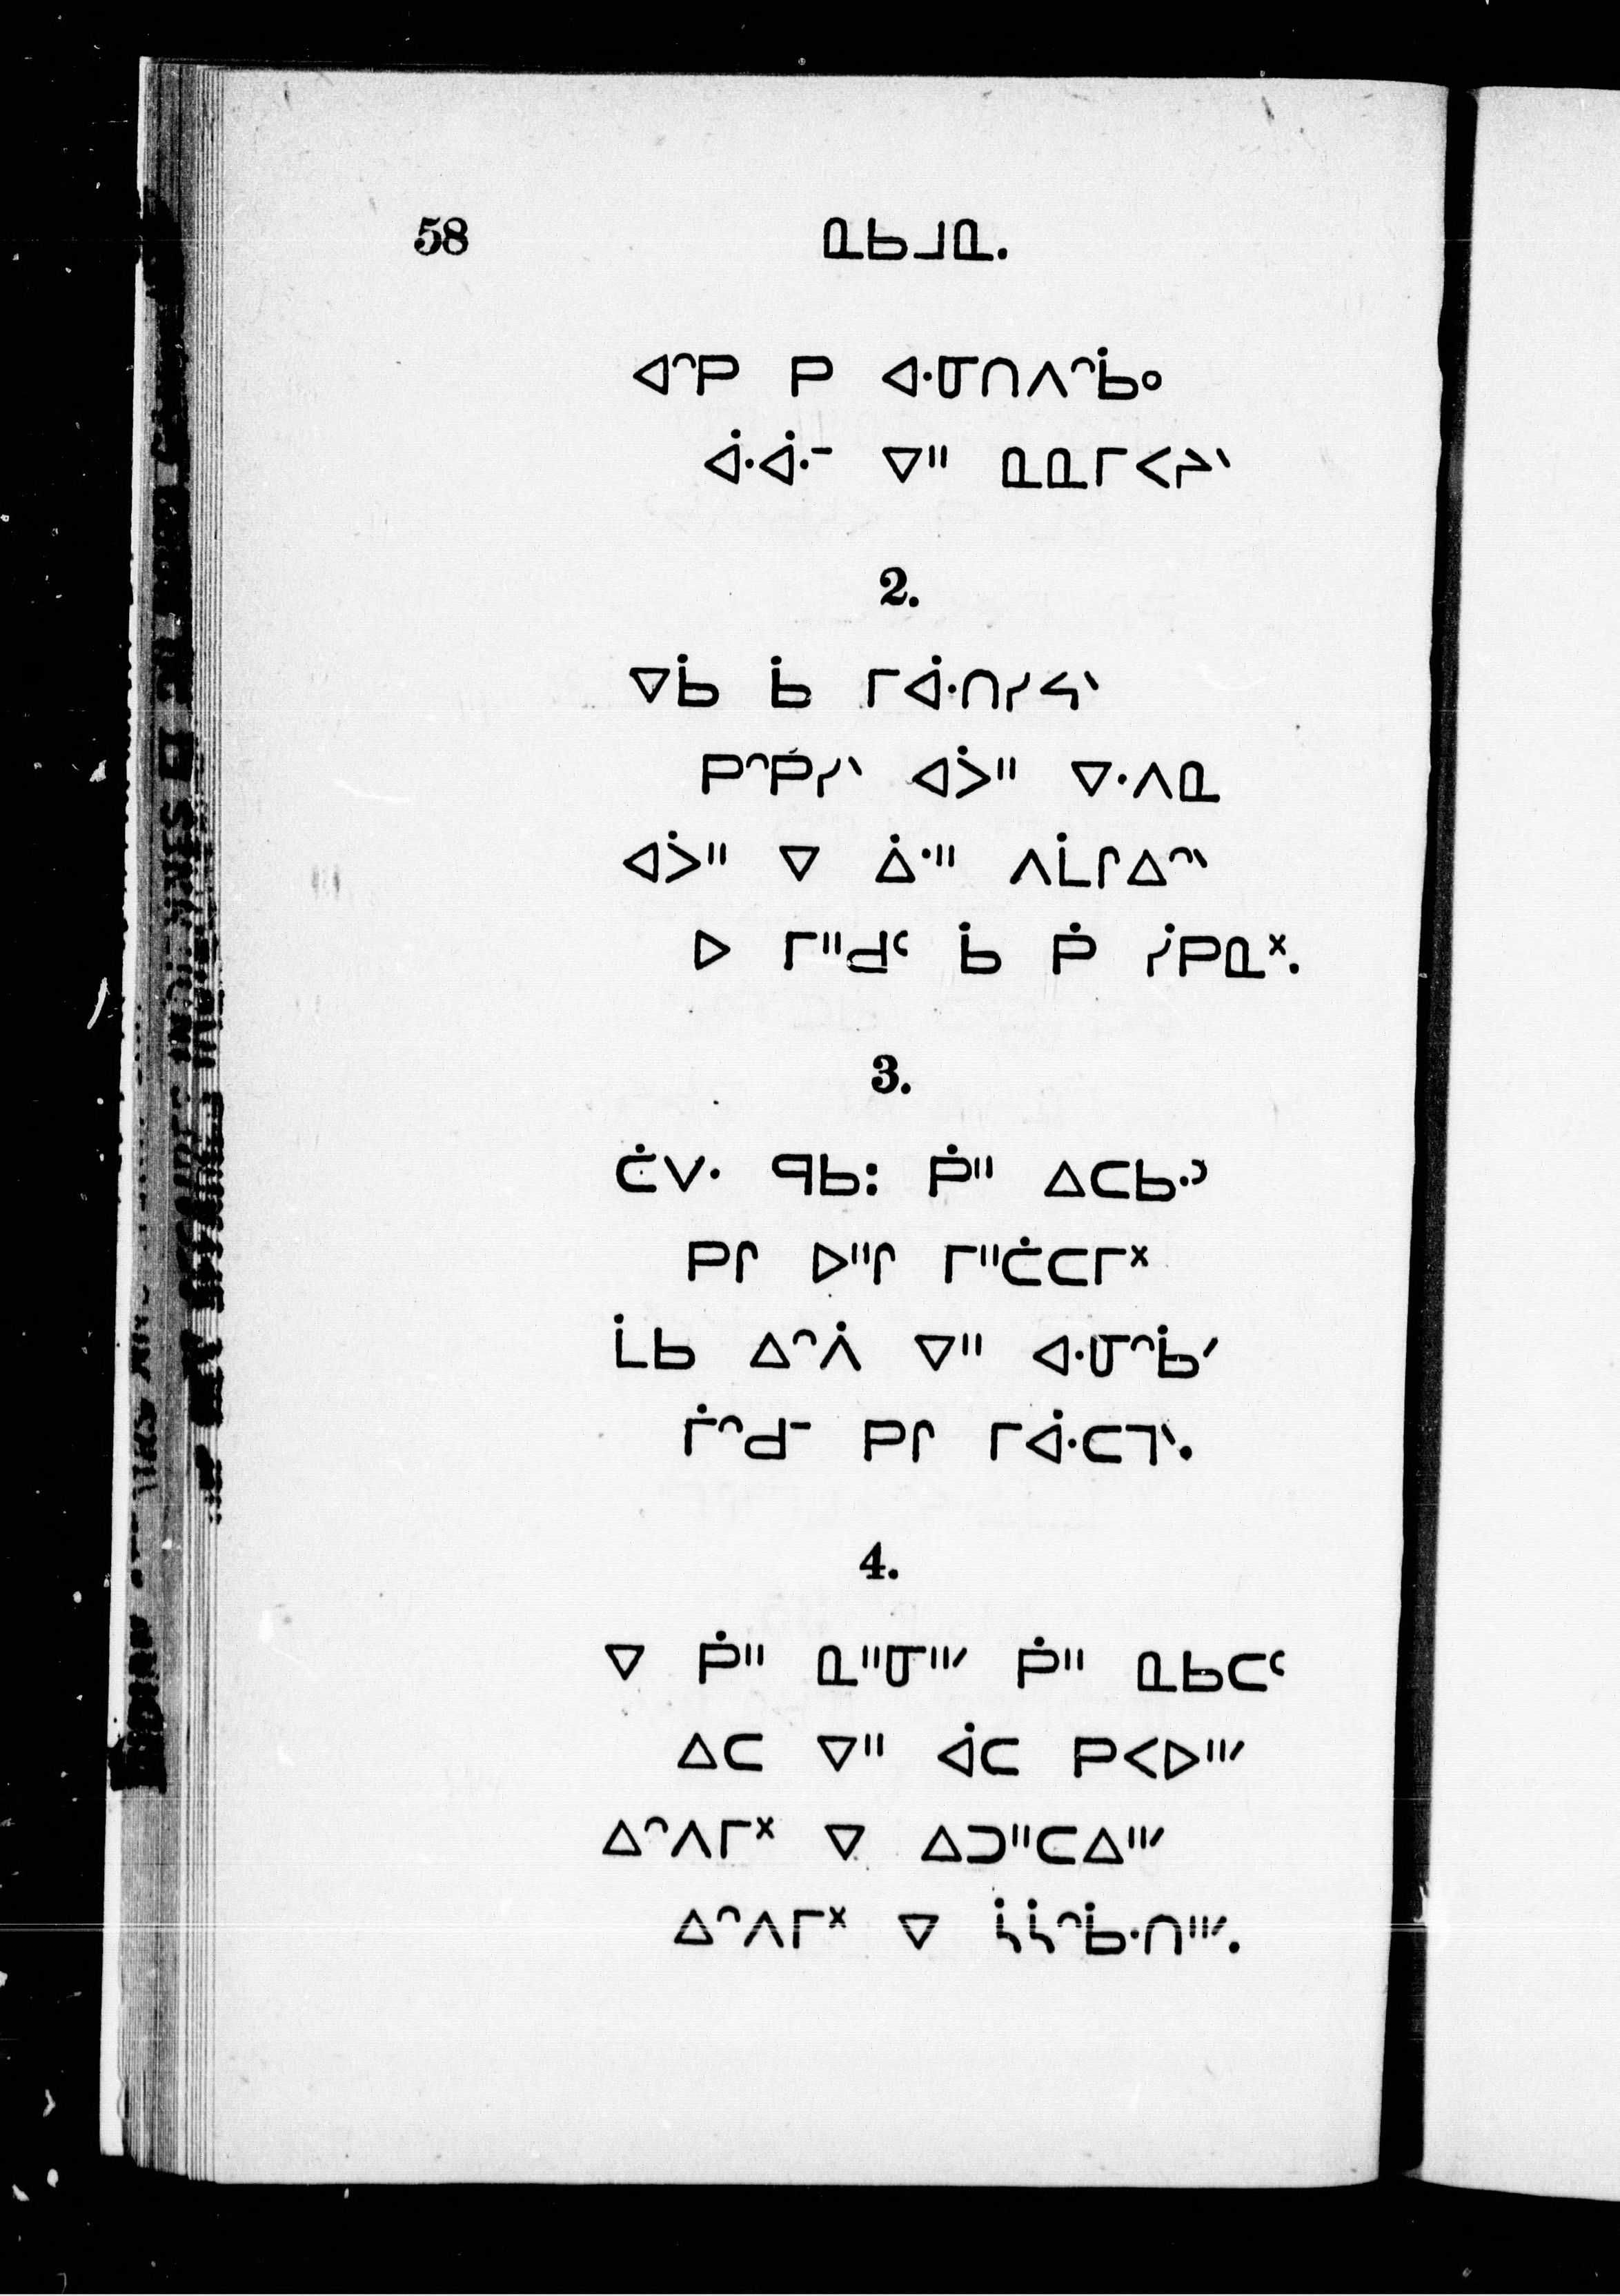 58 ᓇᑲᒧᓇ.
ᐊᐢᑭ ᑭ ᐘᓭᑎᐱᐢᑳᐤ
ᐚᐚᐨ ᐁᐦ ᓇᓇᒥᐸᔨᐠ
2.
ᐁᑳ ᑳ ᒥᐚᑎᓯᔭᐠ
ᑭᐢᑮᓯᐠ ᐊᐴᐦ ᐍᐱᓇ
ᐊᐴᐦ ᐁ ᐄᐧᐦ ᐱᒫᒋᐃᐢᐠ
ᐅ ᒥᐦᑯᑦ ᑳ ᑮ ᓰᑭᓇᕽ.
3.
ᑖᐯᐧ ᑫᑲᢁ ᑮᐦ ᐃᑕᑲᐧᐣ
ᑭᒋ ᐅᐦᒋ ᒥᐦᑖᑕᒥᕽ
ᒫᑲ ᐃᐢᐲ ᐁᐦ ᐘᓭᐢᑳᐟ
ᒦᐢᑯᐨ ᑭᒋ ᒥᐚᑕᒣᐠ.
4.
ᐁ ᑮᐦ ᓇᐦᓭᐦᐟ ᑮᐦ ᓇᑲᑕᑦ
ᐃᑕ ᐁᐦ ᐋᑕ ᑭᐸᐅᐦᐟ
ᐃᐢᐱᒥᕽ ᐁ ᐃᑐᐦᑕᐃᐦᐟ
ᐃᐢᐱᒥᕽ ᐁ ᓵᓵᐢᑳᐧᑎᐦᐟ.